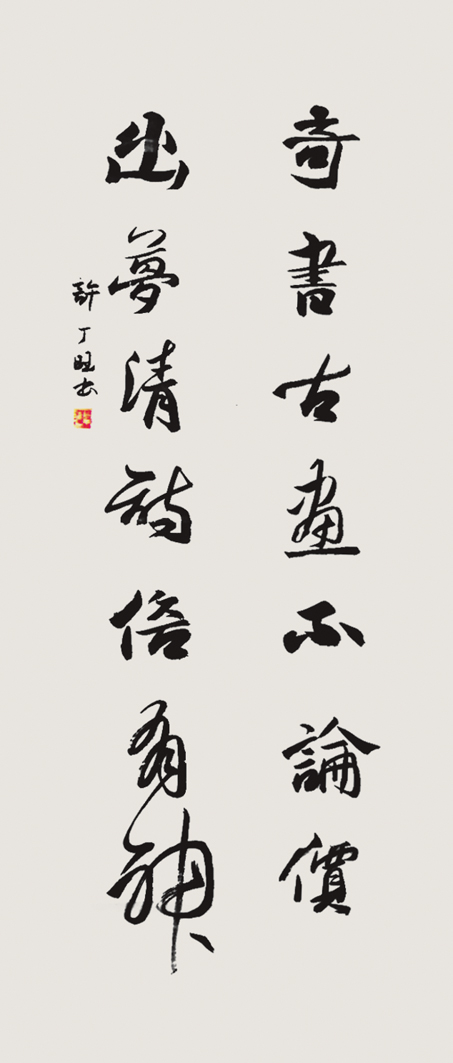 奇書古畫不論價
幽夢清詩倍有神
許丁旺书